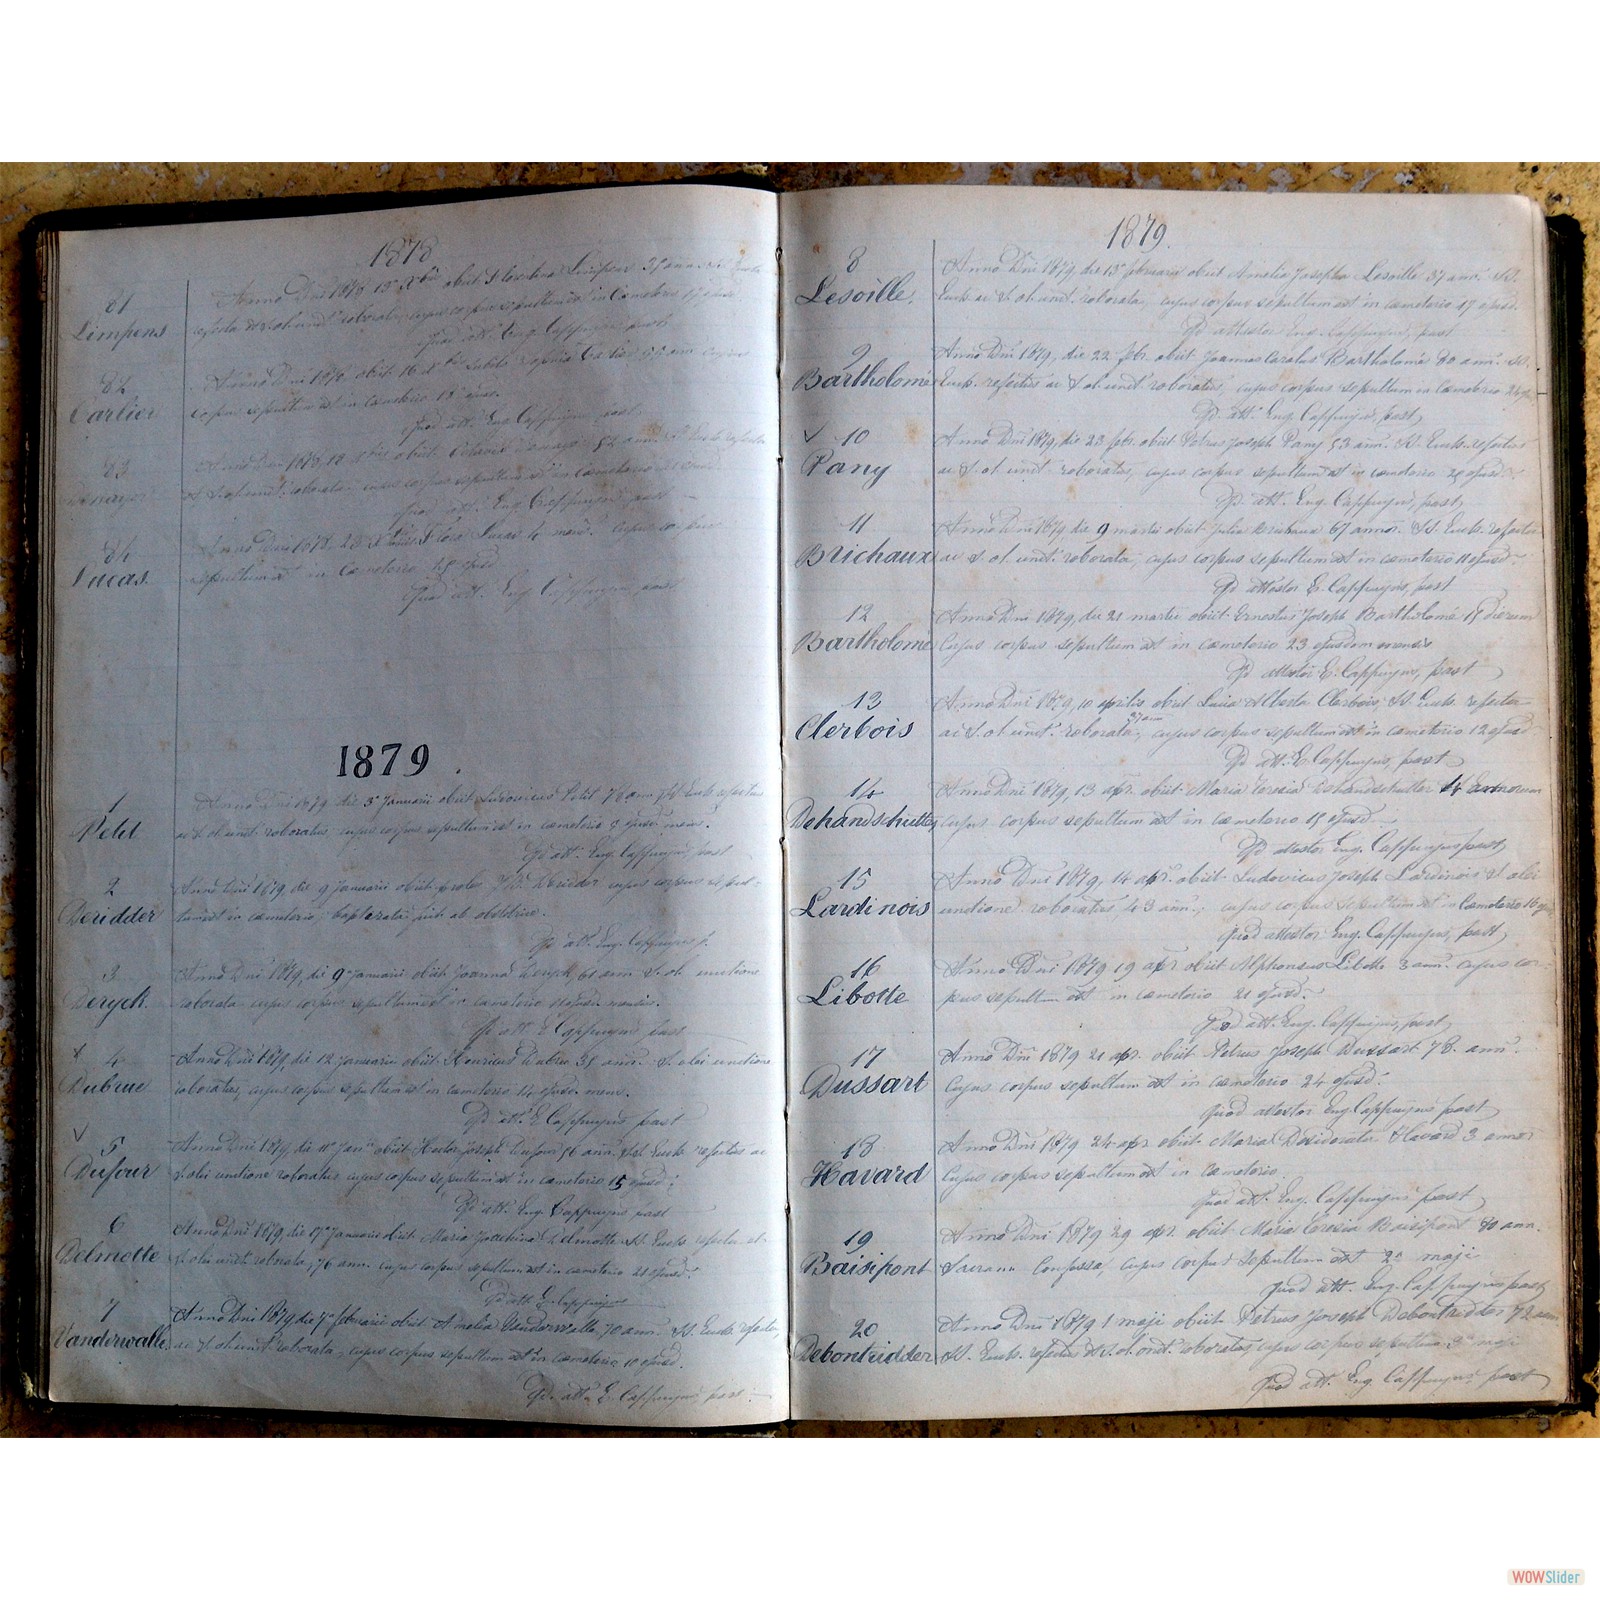 1878
81
Limpens
Anno Dni 1878 15 Xbris obiit Limpens 35 ann.
roborata, cujus corpus sepultum est in Cœmeterio 17 ejusd.
Quod att. Eug. Cappuyns past
82
Carlier
Anno Dni 1878 obiit 16 Carlier 55 ann cujus
corpus sepultum est in cœmeterio 18 ejusd.
Quod att. Eug. Cappuyns, past,
83
Anno Dni 1878, 18 obiit 52 ann. Euch. refecta
et S. ol. unct. roborata cujus corpus sepultum est in cœmeterio
Quod att. Eug. Cappuyns past
84
Lucas.
Anno Dni 1878. 23 Flora Lucas 4 mens. cujus corpus
sepultum est in Cœmeterio 25 ejusd
Quod att. Eug. Cappuyns past
1879
1
Petit
Anno Dni 1879 die 3a Januarii obiit Ludovicus Petit 76 ann. SS. Euch. refectus
ac S. ol. unct. roboratus, cujus corpus sepultum est in cœmeterio 5 ejusd. mens.
Qd att. Eug. Cappuyns, past
2
Deridder
Anno Dni 1879, die 9 Januarii obiit proles Deridder cujus corpus sepul-
tum est in cœmeterio, baptizata fuit ab obstetrice.
Qd att. Eug. Cappuyns p.
3
Deryck.
Anno Dni 1879, die 9a Januarii obiit Joanna Deryck, 61 ann. S. ol. unctione
roborata cujus corpus sepultum est in cœmeterio 11 ejusd. mensis.
Qd att. E Cappuyns past
4
Dubrue
Anno Dni 1879, die 12 Januarii obiit Henricus Dubru 35 ann. S. olei unctione
roboratus, cujus corpus sepultum est in cœmeterio 14 ejusd. mens.
Qd att. E Cappuyns past
5
Dufour
Anno Dni 1879, die 11a Janrii obiit Hector Joseph Dufour 56 ann. SS. Euch. refectus ac
S. olei unctione roboratus cujus corpus sepultum est in cœmeterio 15 ejusd.
Qd att. Eug. Cappuyns past
6
Delmotte
Anno Dni 1879, die 17a Januarii obiit Maria Joséphina Delmotte SS. Euch. refecta et
S. olei unct. roborata, 76 ann. cujus corpus sepultum est in cœmeterio 21 ejusd.
Qd att. E. Cappuyns
7
Vanderwalle
Anno Dni 1879, die 7a februarii obiit Amelia Vanderwalle, 70 ann. SS. Euch. refecta,
ac S. ol. unct. roborata, cujus corpus sepultum est in cœmeterio 10 ejusd.
Qd. att. E. Cappuyns, past
1879.
8
Lesoille.
Anno Dni 1879, die 15a februarii obiit Amelia Josepha Lesoille 37 ann. SS.
Euch ac S. ol. unct. roborata, cujus corpus sepultum est in cœmeterio 17 ejusd.
Qd attestor Eug. Cappuyns, past
9
Bartholomé
Anno Dni 1879, die 22 febr. obiit Joannes Carolus Bartholomé 80 ann. SS.
Euch. refectus ac S. ol. unct. roboratus, cujus corpus sepultum in Cœmeterio 24
Qd. att. Eug. Cappuyns, past,
10
Pany
Anno Dni 1879, die 23 febr. obiit Petrus Joseph Pany 53 ann. SS. Euch. refectus
ac S. ol. unct. roboratus, cujus corpus sepultum est in cœmeterio ejusd.
Qd att. Eug. Cappuyns, past,
11
Brichaux
Anno Dni 1879 die 9 martii obiit Julia Brichaux 67 annor. SS. Euch. refecta
ac S. ol. unct. roborata, cujus corpus sepultum est in cœmeterio 11 ejusd.
Qd attestor E. Cappuyns, past
12
Bartholomé
Anno Dni 1879, die 21 martii obiit Ernestus Joseph Bartholomé 15 dierum
Cujus corpus sepultum est in cœmeterio 23 ejusdem mensis
Qd attestor E. Cappuyns, past
13
Clerbois
Anno Dni 1879, 10 aprilis obiit Lucia Alberta Clerbois, SS. Euch. refecta
ac S. ol. unct. roborata, 27 ann cujus corpus sepultum est in cœmeterio 12 ejusd
Qd att. E. Cappuyns, past
14
Dehandschutter
Anno Dni 1879, 13 apr. obiit Maria Teresia Dehandschutter 14 annorum
Cujus corpus sepultum est in cœmeterio 15 ejusd.
Qd attestor Eug. Cappuyns past,
15
Lardinois
Anno Dni 1879, 14 apr. obiit Ludovicus Joseph Lardinois S. olei
unctione roboratus, 43 ann., cujus corpus sepultum est in Cœmeterio 16 ejusd
Quod attestor Eug. Cappuyns, past,
16
Libotte
Anno Dni 1879 19 apr obiit Alphonsus Libotte 3 ann. cujus cor-
pus sepultum est in cœmeterio 21 ejusd.
Quod att. Eug. Cappuyns, past,
17
Dussart
Anno Dni 1879 21 apr. obiit Petrus Joseph Dussart 78. ann.
Cujus corpus sepultum est in cœmeterio 24 ejusd.
Quod attestor Eug. Cappuyns past,
18
Havard
Anno Dni 1879 24 apr obiit Maria Desiderata Havard 3 annor
Cujus corpus sepultum est in cœmeterio
Quod att. Eug. Cappuyns past
19
Baisipont
Anno Dni 1879 29 apr. obiit Maria Teresia Baisipont 80 ann.
Confessa, Cujus corpus sepultum est 2a maji
Quod att. Eug. Cappuyns past,
20
Debontridder
Anno Dni 1879 1 maji obiit Petrus Joseph Debontridder 72 ann
SS. Euch. refectus et S. ol. unct. roboratus, cujus corpus sepultum 3a maji
Quod att. Eug Cappuyns past
WOWSlider